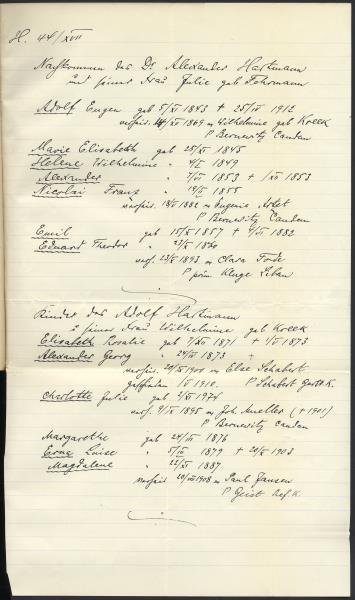 H. 44/XVII
Nachkommen des Dr. Alexander Hartmann
und seiner Frau Julie geb Fehrmann
Adolf Eugen geb 5/XI 1843 + 25/IV 1912
1869 m Wilhelmine geb Kreek
P Bernewitz Candau
Marie Elisabeth geb 25/XI 1845
Helene Wilhelmine " 9/I 1849
Alexander " 7/VII 1853 + 1/XI 1853
Nicolai Franz " 19/II 1855
1882 m Eugenie
P Bernewitz Candau
Emil geb 15/XI 1857 + 1882
Eduard Theodor " 23/X
verh. 23/X 1893 m Clara Tode
P prim Kluge Libau
Kinder des Adolf Hartmann
u seiner Frau Wilhelmine geb Kreek
Elisabeth Rosalie geb 7/XII 1871 + 1/VI 1873
Alexander Georg " 24/VI 1873 +
m Else Schabert
1/VI 1910. P Schabert
Charlotte Julie geb 2/VI
verh. 9/IX 1895 m Joh Mueller (+ 1901)
P Bernewitz Candau
Margarethe geb 24/VII 1876
Erna Luise " 5/IV 1879 + 20/X 1903
Magdalene " 22/XI 1887
1908 m Paul Jansen
P Geist Ref. K.